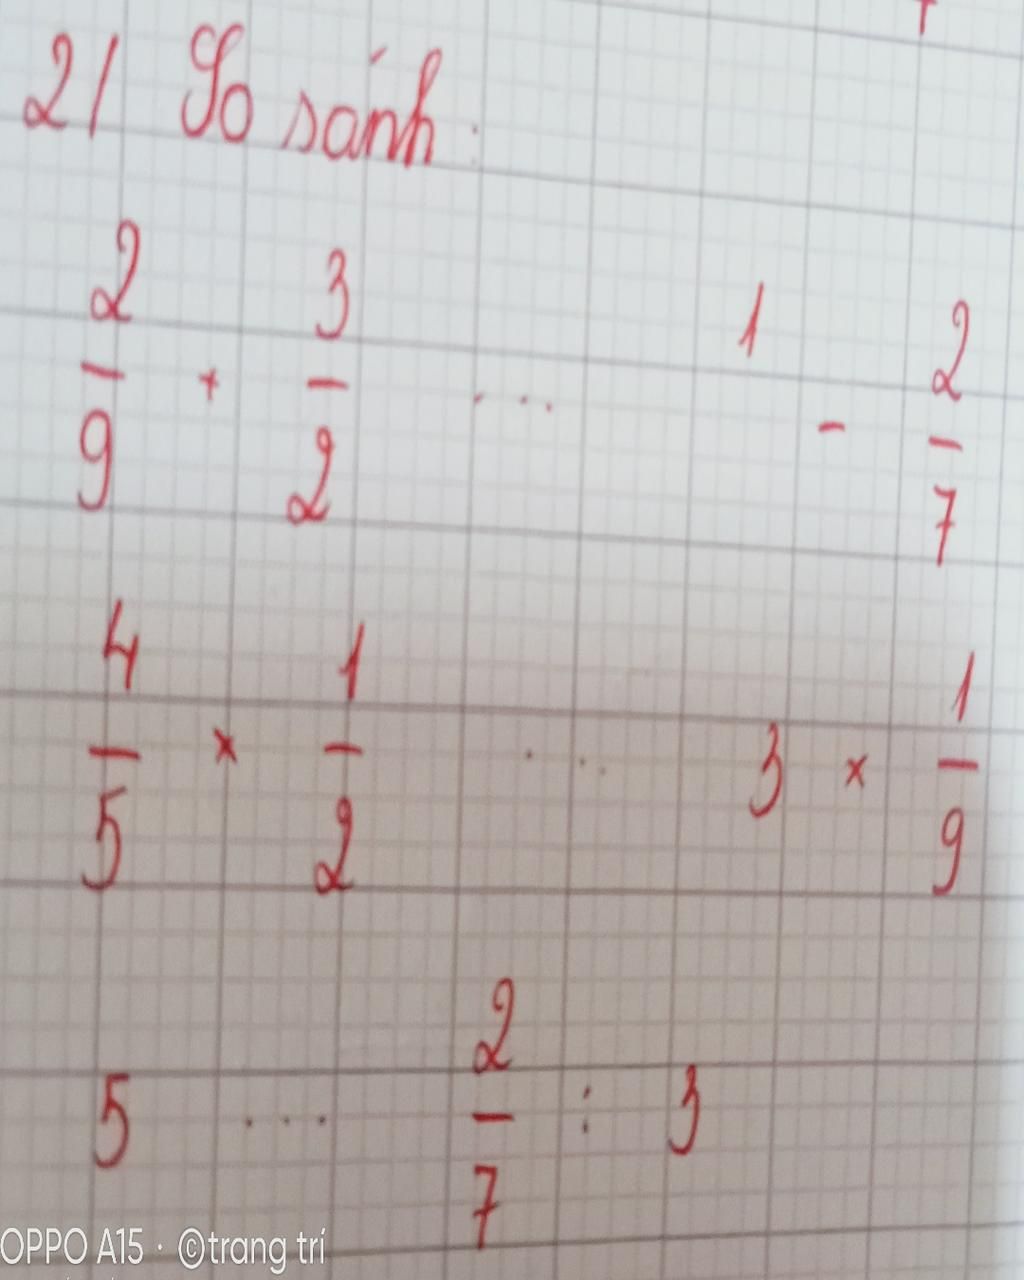 2/ So sánh:
2/9 + 3/2 ... 1 - 2/7
4/5 × 1/2 ... 3 × 1/9
5 ... 2/7 : 3
OPPO A15 · ©trang trí